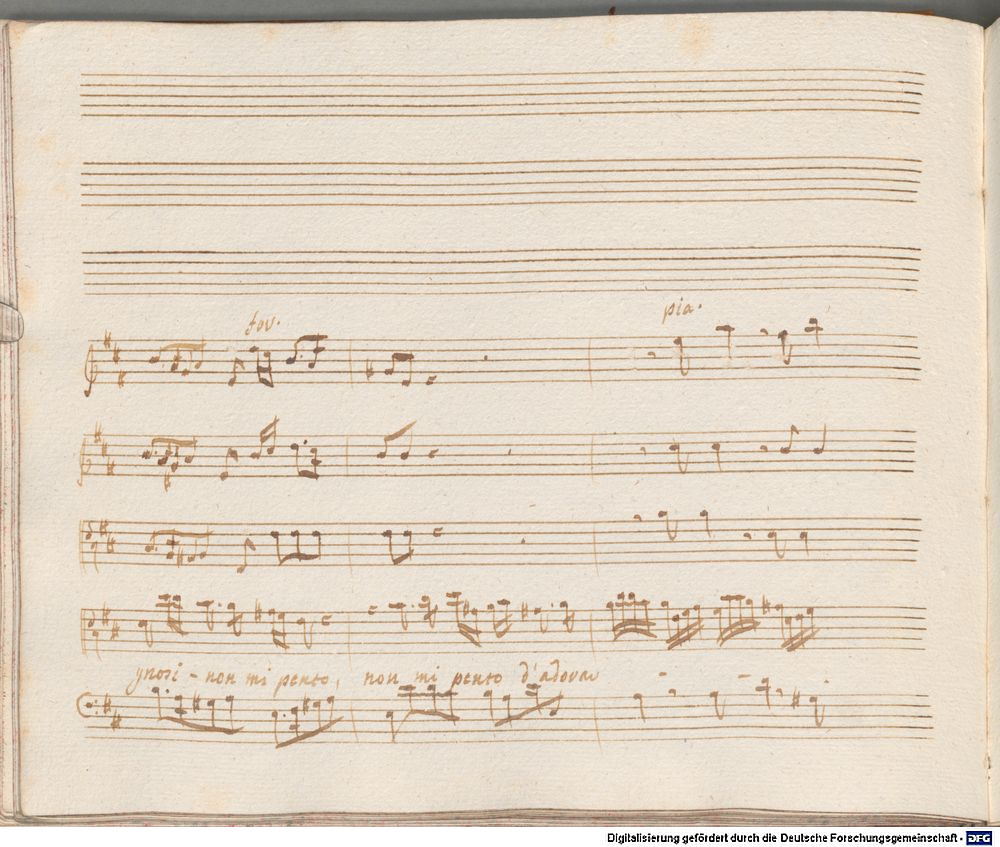 for.
pia.
gnosi - non mi pento, non mi pento d'adorar - -
Digitalisierung gefördert durch die Deutsche Forschungsgemeinschaft - DFG